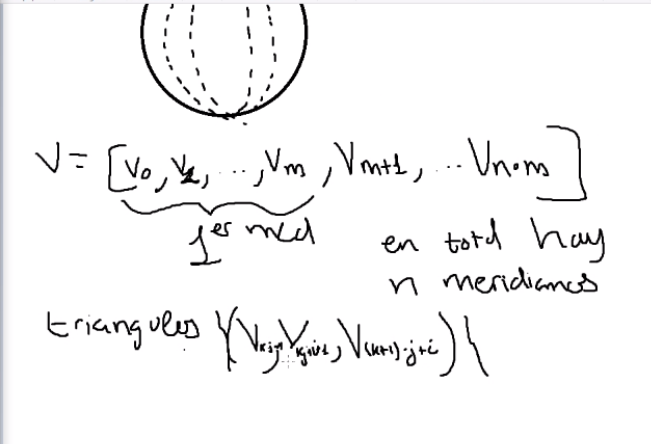 V = [V0, V1, ..., Vm, Vm+1, ... Vn·m]
1er med en total hay
n meridianos
triangulos {(Vkj+i, Vkj+i+1, V(k+1)·j+i)}